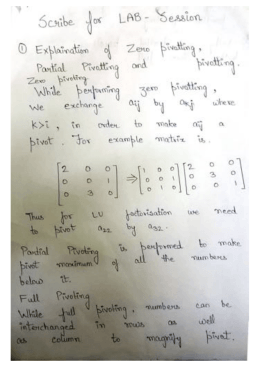 Scribe for LAB - Session
① Explaination of Zero pivotting,
Partial Pivotting and pivotting.
Zero pivoting
While performing zero pivotting,
we exchange aij by akj where
k>i, in order to make aij a
pivot. For example matrix is.
[2 0 0; 0 0 1; 0 3 0] ⇒ [1 0 0; 0 0 1; 0 1 0] [2 0 0; 0 3 0; 0 0 1]
Thus for LU factorisation we need
to pivot a22 by a32.
Partial Pivoting is performed to make
pivot maximum of all the numbers
below it.
Full Pivoting
While full pivoting, numbers can be
interchanged in rows as well
as column to magnify pivot.